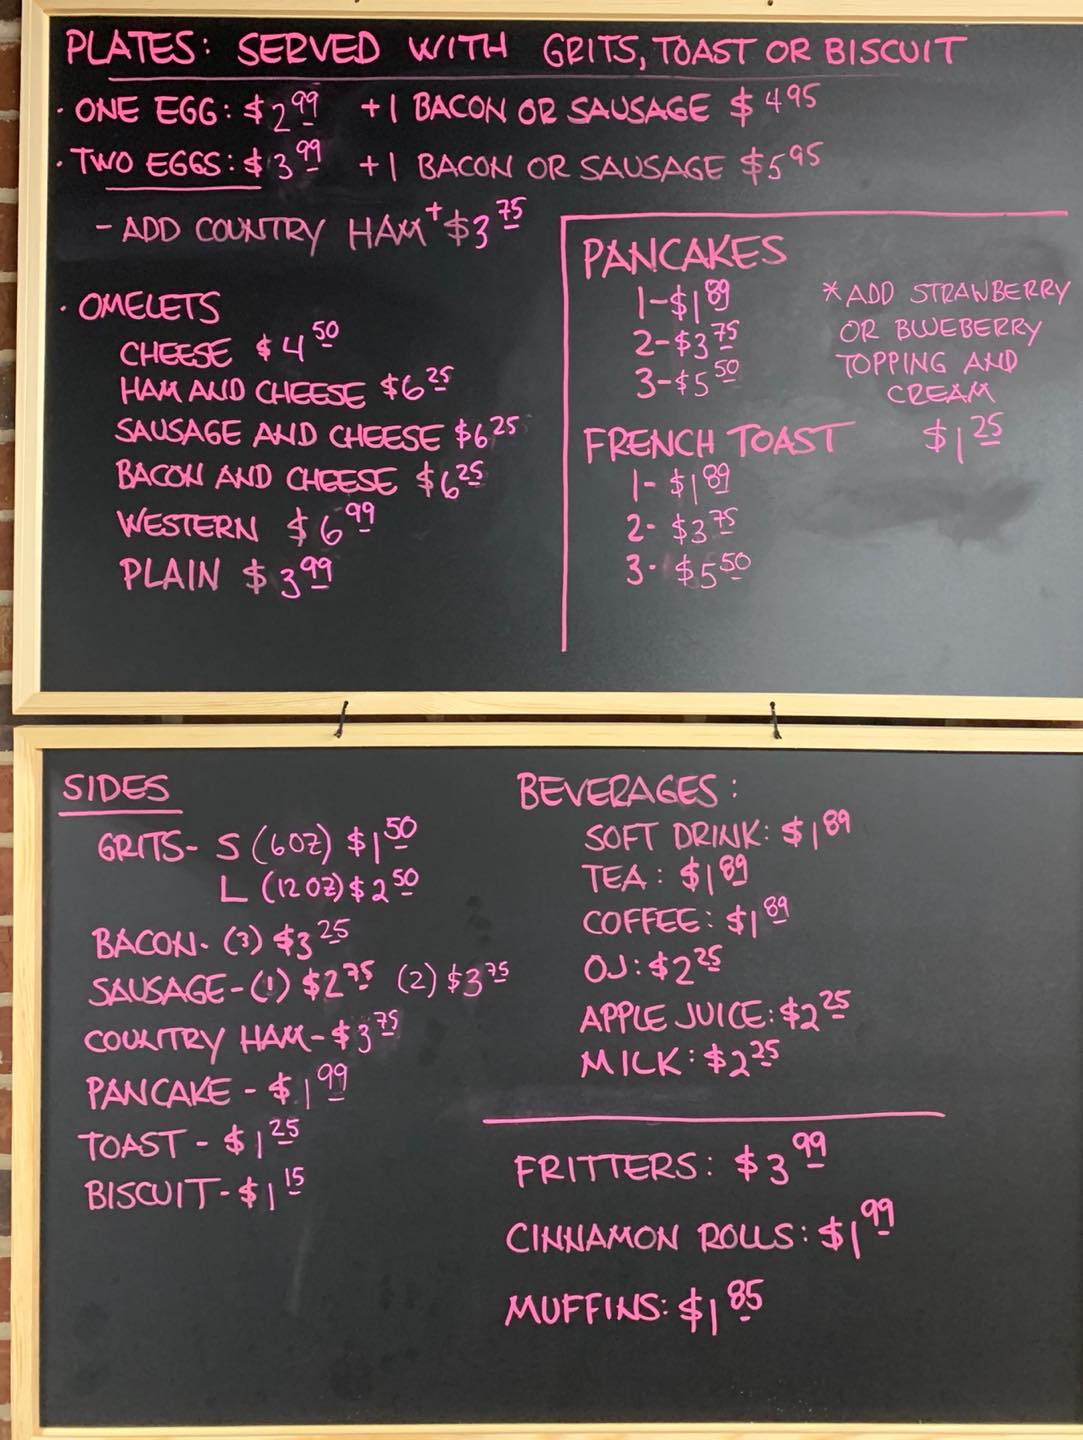 PLATES: SERVED WITH GRITS, TOAST OR BISCUIT
· ONE EGG: $2.99 +1 BACON OR SAUSAGE $4.95
· TWO EGGS: $3.99 +1 BACON OR SAUSAGE $5.95
- ADD COUNTRY HAM + $3.75
· OMELETS
CHEESE $4.50
HAM AND CHEESE $6.25
SAUSAGE AND CHEESE $6.25
BACON AND CHEESE $6.25
WESTERN $6.99
PLAIN $3.99
PANCAKES
1-$1.89
2-$3.75
3-$5.50
*ADD STRAWBERRY
OR BLUEBERRY
TOPPING AND
CREAM
$1.25
FRENCH TOAST
1- $1.89
2- $3.75
3- $5.50
SIDES
GRITS- S (6OZ) $1.50
L (12 OZ) $2.50
BACON- (3) $3.25
SAUSAGE-(1) $2.75 (2) $3.75
COUNTRY HAM-$3.75
PANCAKE - $1.99
TOAST - $1.25
BISCUIT-$1.15
BEVERAGES:
SOFT DRINK: $1.89
TEA: $1.89
COFFEE: $1.89
OJ: $2.25
APPLE JUICE: $2.25
MILK: $2.25
FRITTERS: $3.99
CINNAMON ROLLS: $1.99
MUFFINS: $1.85